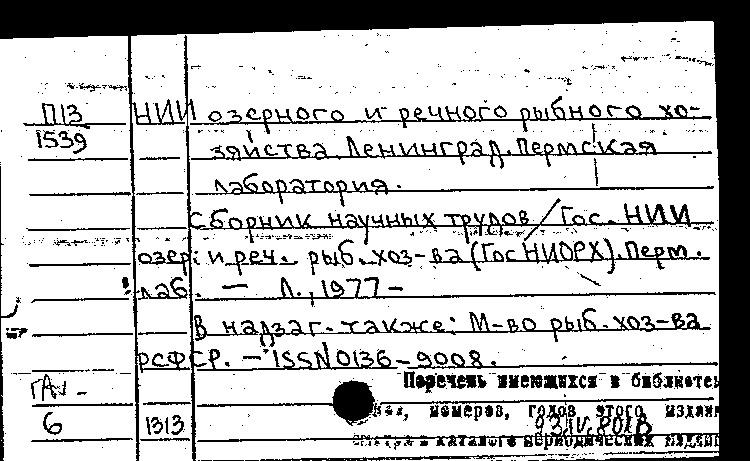 П13 НИИ озерного и речного рыбного хо-
1539 зяйства. Ленинград. Пермская
лаборатория.
Сборник научных трудов / Гос. НИИ
озер. и реч. рыб. хоз-ва (ГосНИОРХ). Перм.
лаб. — Л., 1977-
В надзаг. также: М-во рыб. хоз-ва
РСФСР. — ISSN 0136-9008.
Перечень имеющихся в библиотек
номеров, годов этого издани
6 1313
смотри в каталоге периодических издани